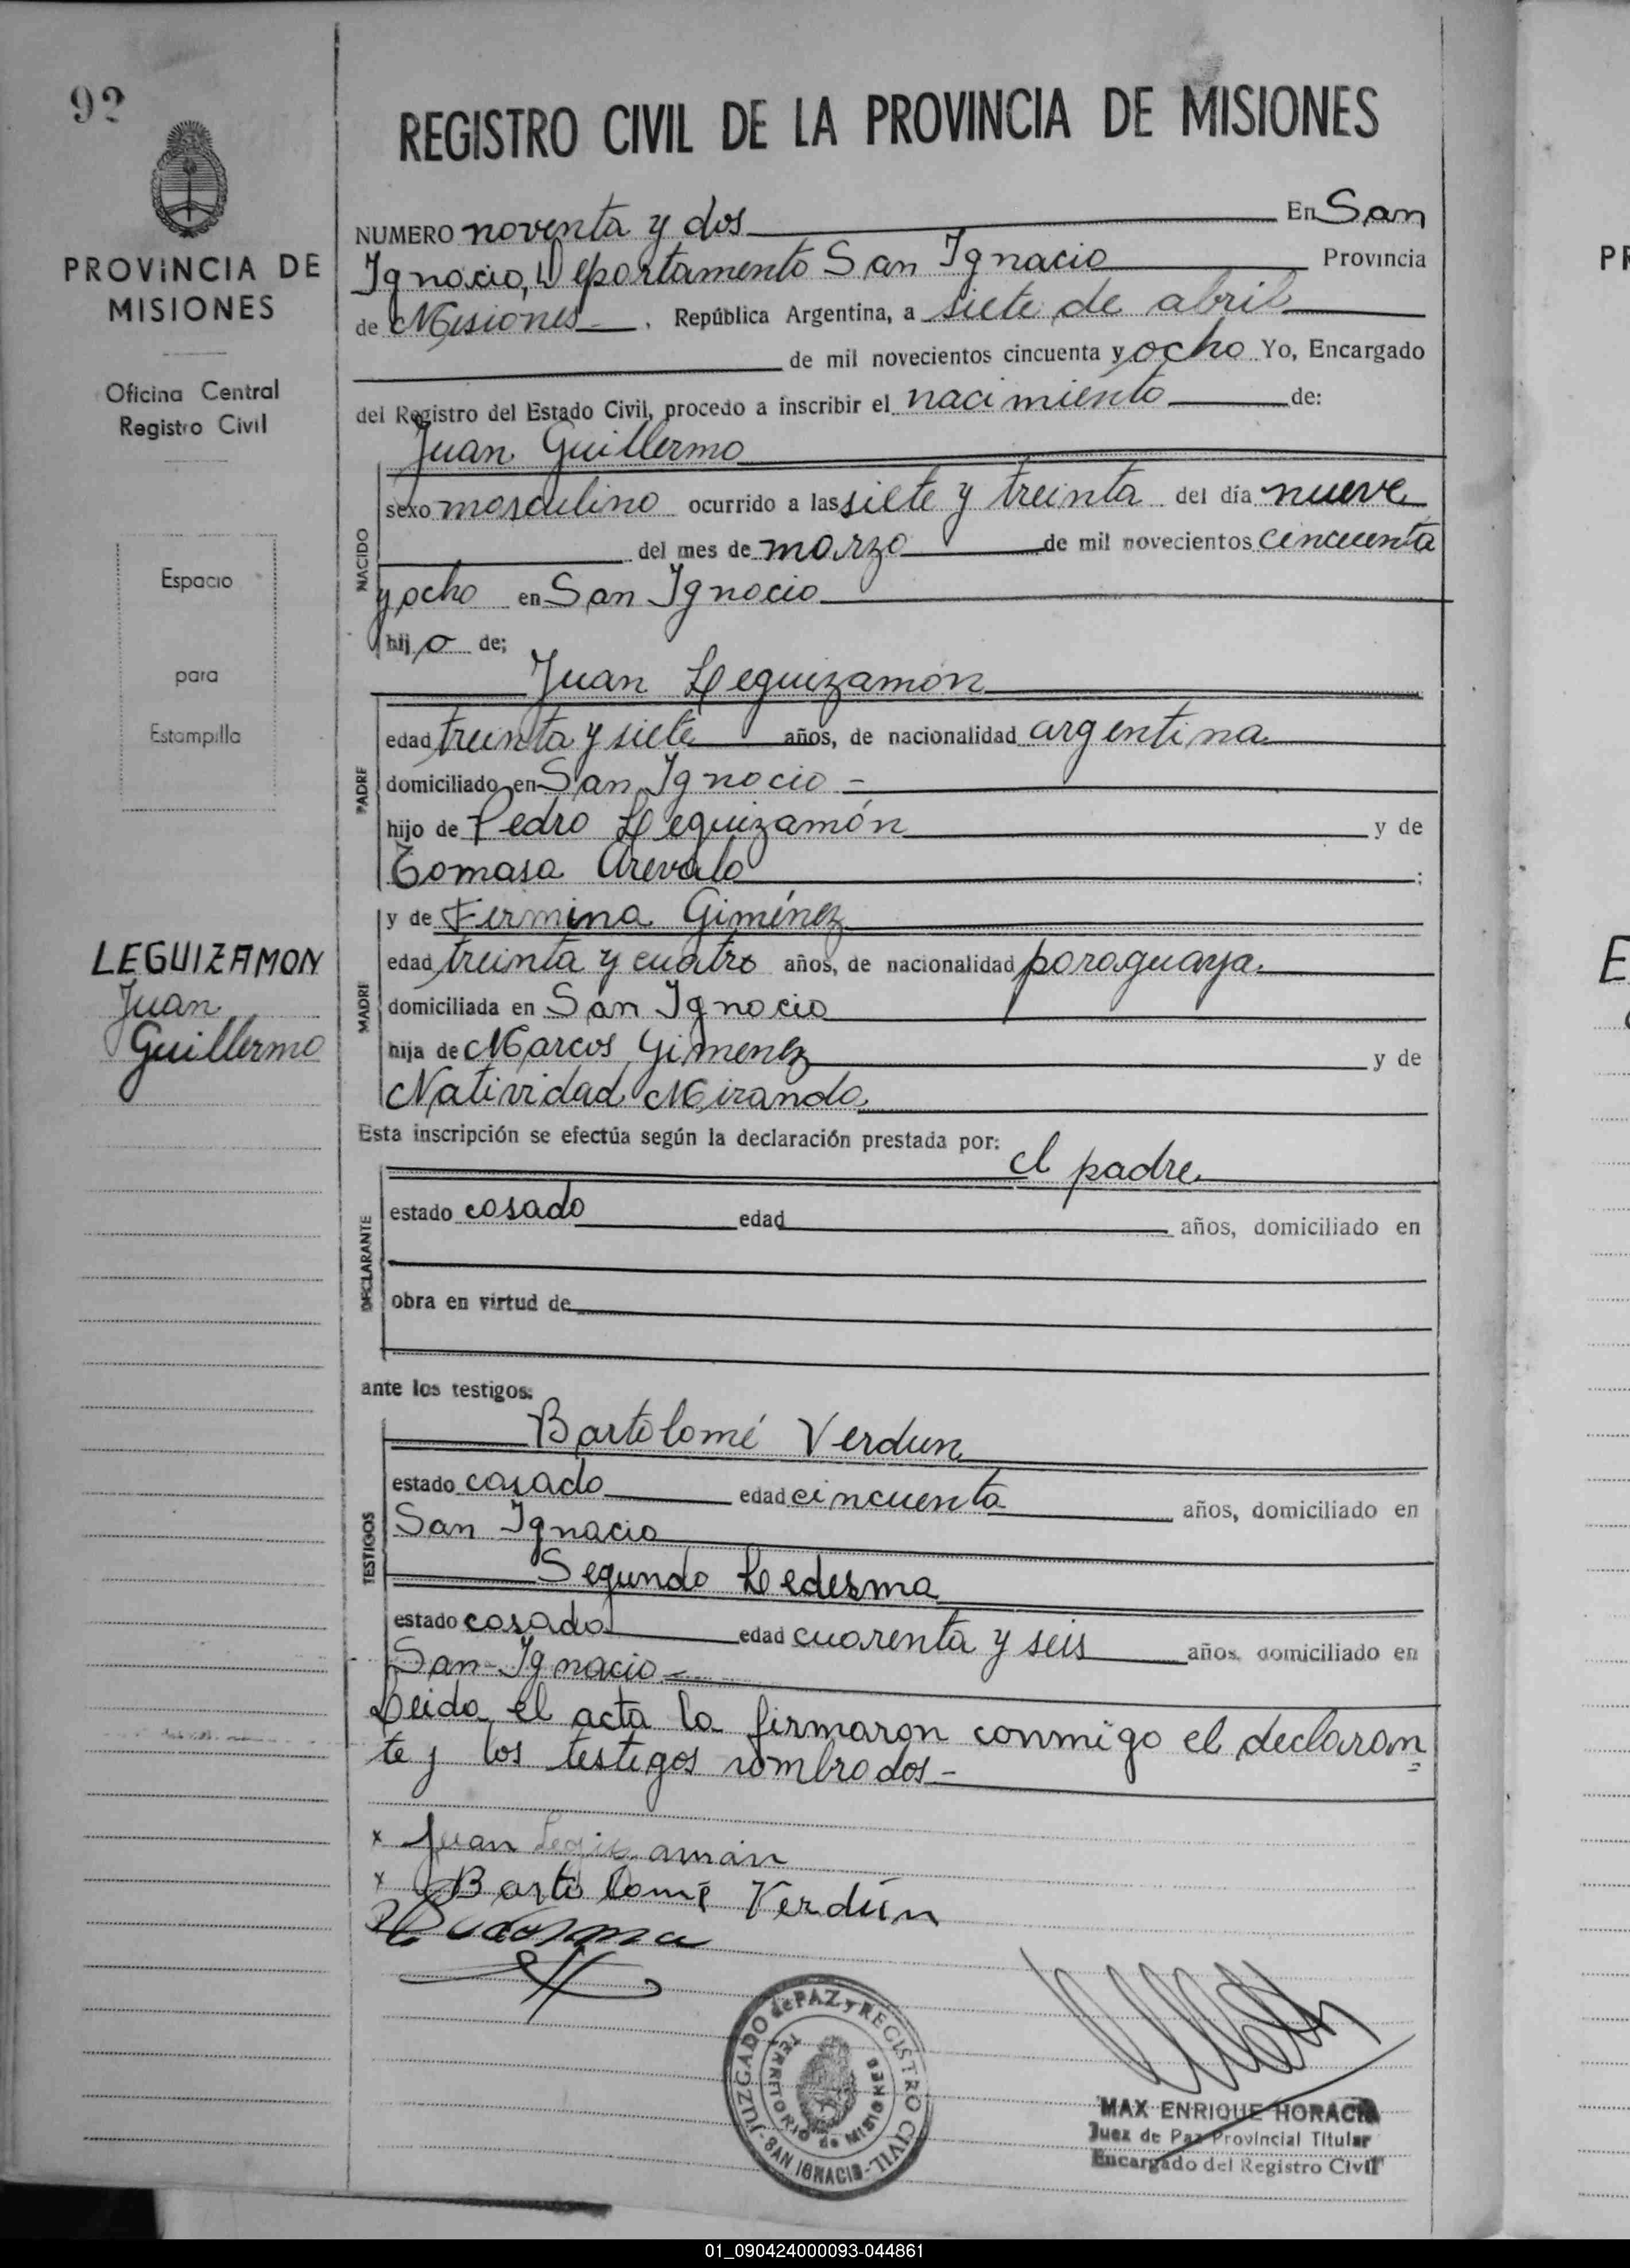 92
REGISTRO CIVIL DE LA PROVINCIA DE MISIONES
PROVINCIA DE
MISIONES
Oficina Central
Registro Civil
Espacio
para
Estampilla
LEGUIZAMON
Juan
Guillermo
NUMERO noventa y dos En San
Ignacio, Departamento San Ignacio Provincia
de Misiones, República Argentina, a siete de abril
de mil novecientos cincuenta y ocho Yo, Encargado
del Registro del Estado Civil, procedo a inscribir el nacimiento de:
Juan Guillermo
NACIDO
sexo masculino ocurrido a las siete y treinta del día nueve
del mes de marzo de mil novecientos cincuenta
y ocho en San Ignacio
hijo de;
Juan Leguizamon
PADRE
edad treinta y siete años, de nacionalidad argentina
domiciliado en San Ignacio -
hijo de Pedro Leguizamón y de
Tomasa Arevalo ;
MADRE
y de Fermina Giménez
edad treinta y cuatro años, de nacionalidad paraguaya
domiciliada en San Ignacio
hija de Marcos Gimenez y de
Natividad Miranda
Esta inscripción se efectúa según la declaración prestada por:
el padre
DECLARANTE
estado casado edad años, domiciliado en
obra en virtud de
ante los testigos:
Bartolomé Verdun
TESTIGOS
estado casado edad cincuenta años, domiciliado en
San Ignacio
Segundo Ledesma
estado casado edad cuarenta y seis años, domiciliado en
San Ignacio -
Leida el acta la firmaron conmigo el declaran=
te y los testigos nombrados -
x Juan Leguizamón
x Bartolomé Verdún
Ledesma
JUZGADO de PAZ y REGISTRO CIVIL - SAN IGNACIO -
TERRITORIO de MISIONES
MAX ENRIQUE HORACIA
Juez de Paz Provincial Titular
Encargado del Registro Civil
PR
E
01_090424000093-044861